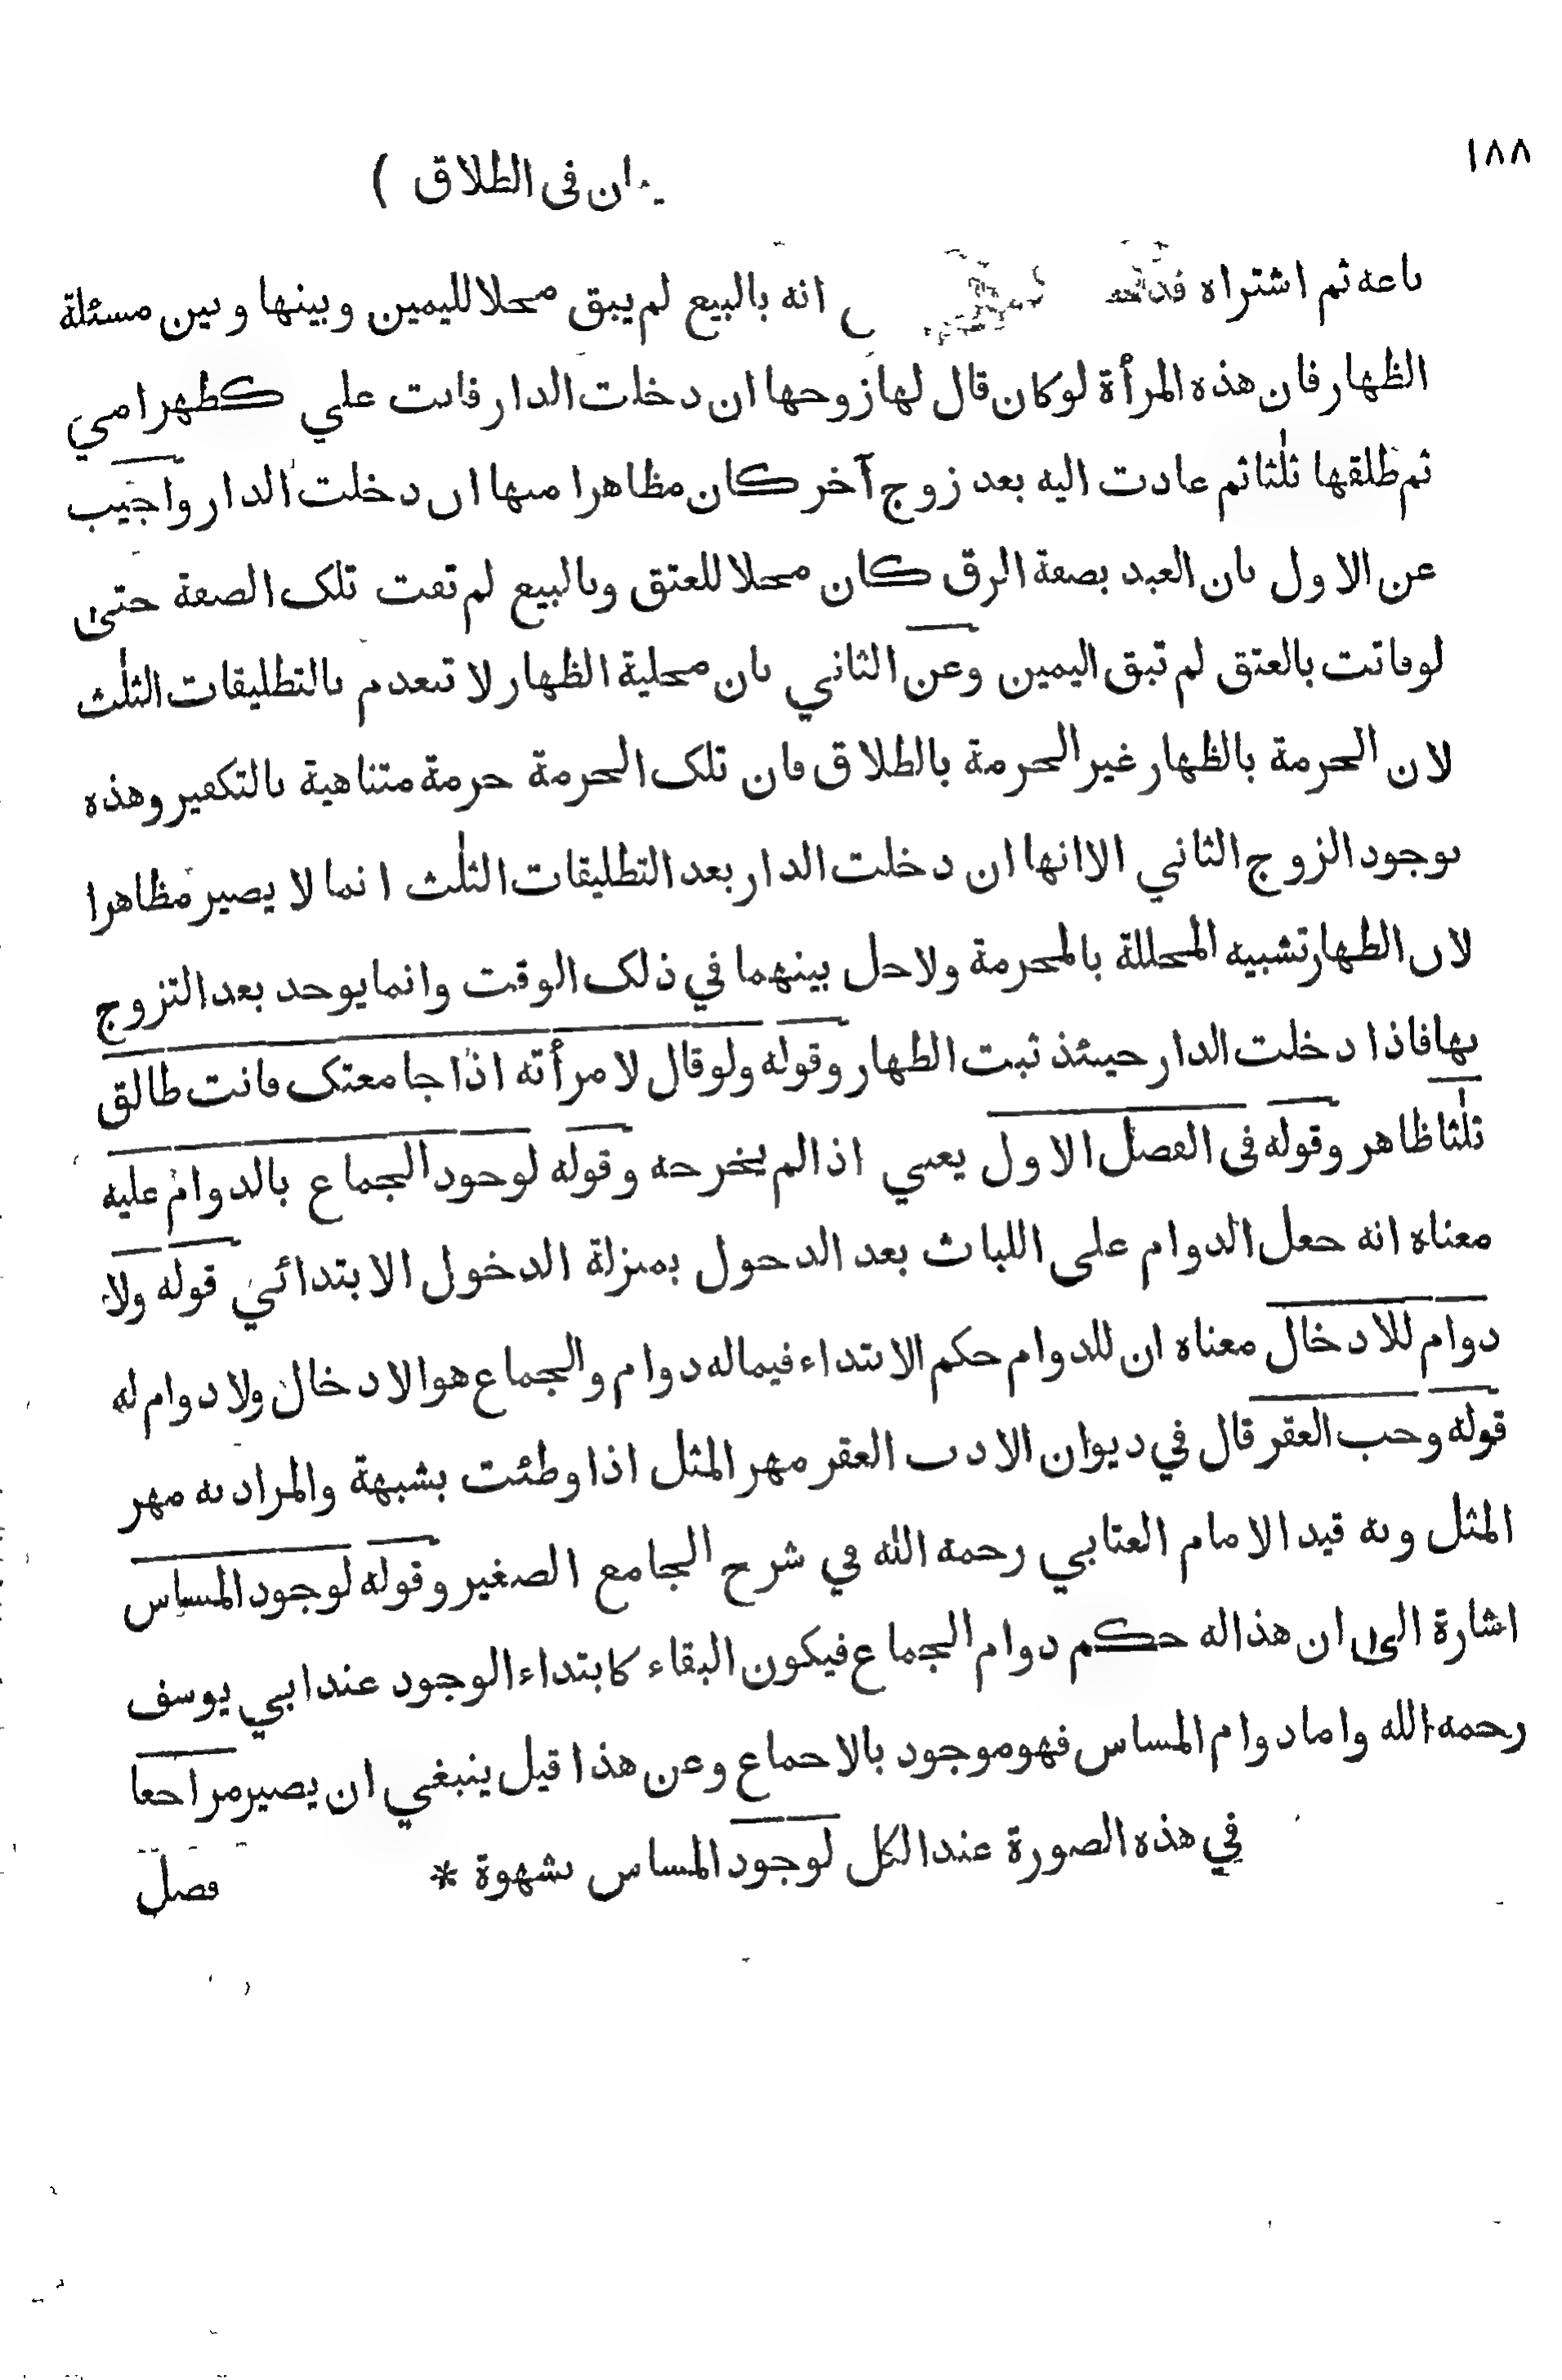 ١٨٨
ان فى الطلاق )
باعه ثم اشتراه انه بالبيع لم يبق محلا لليمين وبينها وبين مسئلة
الظهار فان هذه المرأة لو كان قال لها زوجها ان دخلت الدار فانت علي كظهر امي
ثم طلقها ثلٰثا ثم عادت اليه بعد زوج آخر كان مظاهرا منها ان دخلت الدار واجيب
عن الاول بان العبد بصفة الرق كان محلا للعتق وبالبيع لم تفت تلك الصفة حتىٰ
لو فاتت بالعتق لم تبق اليمين وعن الثاني بان محلية الظهار لا تنعدم بالتطليقات الثلٰث
لان الحرمة بالظهار غير الحرمة بالطلاق فان تلك الحرمة حرمة متناهية بالتكفير وهذه
بوجود الزوج الثاني الا انها ان دخلت الدار بعد التطليقات الثلٰث انما لا يصير مظاهرا
لان الظهار تشبيه المحللة بالمحرمة ولا حل بينهما في ذلك الوقت وانما يوجد بعد التزوج
بها فاذا دخلت الدار حينئذ ثبت الظهار وقوله ولو قال لامرأته اذا جامعتك فانت طالق
ثلٰثا ظاهر وقوله فى الفصل الاول يعني اذا لم يخرجه وقوله لوجود الجماع بالدوام عليه
معناه انه جعل الدوام على اللباث بعد الدخول بمنزلة الدخول الابتدائي قوله ولا
دوام للادخال معناه ان للدوام حكم الابتداء فيما له دوام والجماع هو الادخال ولا دوام له
قوله وجب العقر قال في ديوان الادب العقر مهر المثل اذا وطئت بشبهة والمراد به مهر
المثل وبه قيد الامام العتابي رحمه الله في شرح الجامع الصغير وقوله لوجود المساس
اشارة الىٰ ان هذا له حكم دوام الجماع فيكون البقاء كابتداء الوجود عند ابي يوسف
رحمه الله واما دوام المساس فهو موجود بالاجماع وعن هذا قيل ينبغي ان يصير مراجعا
في هذه الصورة عند الكل لوجود المساس بشهوة *
فصل